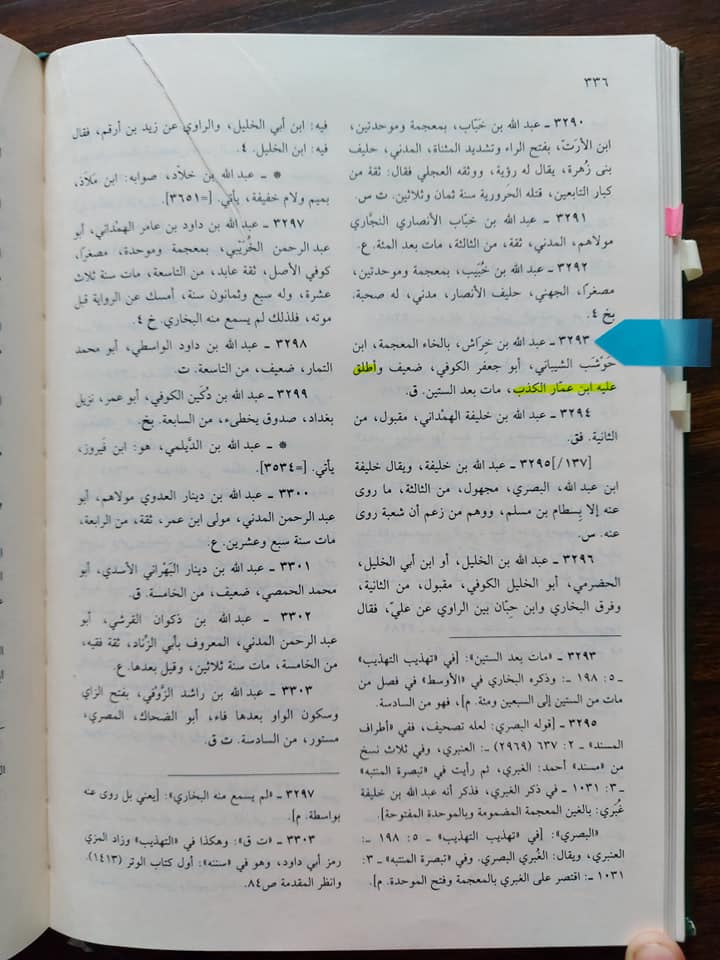 ٣٣٦
٣٢٩٠ ـ عبد الله بن خَبّاب، بمعجمة وموحدتين،
ابن الأرَتّ، بفتح الراء وتشديد المثناة، المدني، حليف
بني زُهرة، يقال له رؤية، ووثقه العجلي فقال: ثقة من
كبار التابعين، قتله الحَرورية سنة ثمان وثلاثين. ت س.
٣٢٩١ ـ عبد الله بن خبّاب الأنصاري النجّاري
مولاهم، المدني، ثقة، من الثالثة، مات بعد المئة. ع.
٣٢٩٢ ـ عبد الله بن خُبَيب، بمعجمة وموحدتين،
مصغراً، الجهني، حليف الأنصار، مدني، له صحبة.
بخ ٤.
٣٢٩٣ ـ عبد الله بن خِراش، بالخاء المعجمة، ابن
حَوْشَب الشيباني، أبو جعفر الكوفي، ضعيف وأطلق
عليه ابن عمّار الكذب، مات بعد الستين. ق.
٣٢٩٤ ـ عبد الله بن خليفة الهمْداني، مقبول، من
الثانية. فق.
[١٣٧/]٣٢٩٥ ـ عبد الله بن خليفة، ويقال خليفة
ابن عبد الله، البصري، مجهول، من الثالثة، ما روى
عنه إلا بِسطام بن مسلم، ووهم من زعم أن شعبة روى
عنه. س.
٣٢٩٦ ـ عبد الله بن الخليل، أو ابن أبي الخليل،
الحضرمي، أبو الخليل الكوفي، مقبول، من الثانية،
وفرق البخاري وابن حِبّان بين الراوي عن عليّ، فقال
٣٢٩٣ ـ «مات بعد الستين»: [في «تهذيب التهذيب»
ـ ٥: ١٩٨ ـ: وذكره البخاري في «الأوسط» في فصل من
مات من الستين إلى السبعين ومئة. م]، فهو من السادسة.
٣٢٩٥ ـ [قوله البصري: لعله تصحيف، ففي «أطراف
المسند» ـ ٢: ٦٣٧ (٢٩٦٩) ـ: العنبري، وفي ثلاث نسخ
من «مسند» أحمد: الغبري، ثم رأيت في «تبصرة المنتبه»
ـ ٣: ١٠٣١ ـ في ذكر الغبري، فذكر أنه عبد الله بن خليفة
غُبَري: بالغين المعجمة المضمومة وبالموحدة المفتوحة].
«البصري»: [في «تهذيب التهذيب» ـ ٥: ١٩٨ ـ:
العنبري، ويقال: الغُبري البصري. وفي «تبصرة المنتبه» ـ ٣:
١٠٣١ ـ: اقتصر على الغبري بالمعجمة وفتح الموحدة. م].
فيه: ابن أبي الخليل، والراوي عن زيد بن أرقم، فقال
فيه: ابن الخليل. ٤.
* ـ عبد الله بن خلّاد، صوابه: ابن مَلاَذ،
بميم ولام خفيفة، يأتي. [=٣٦٥١].
٣٢٩٧ ـ عبد الله بن داود بن عامر الهمْداني، أبو
عبد الرحمن الخُرَيْبي، بمعجمة وموحدة، مصغراً،
كوفي الأصل، ثقة عابد، من التاسعة، مات سنة ثلاث
عشرة، وله سبع وثمانون سنة، أمسك عن الرواية قبل
موته، فلذلك لم يسمع منه البخاري. خ ٤.
٣٢٩٨ ـ عبد الله بن داود الواسطي، أبو محمد
التمار، ضعيف، من التاسعة. ت.
٣٢٩٩ ـ عبد الله بن دُكَين الكوفي، أبو عمر، نزيل
بغداد، صدوق يخطىء، من السابعة. بخ.
* ـ عبد الله بن الدَّيلمي، هو: ابن فَيروز،
يأتي. [=٣٥٣٤].
٣٣٠٠ ـ عبد الله بن دينار العدوي مولاهم، أبو
عبد الرحمن المدني، مولى ابن عمر، ثقة، من الرابعة،
مات سنة سبع وعشرين. ع.
٣٣٠١ ـ عبد الله بن دينار البَهْراني الأسدي، أبو
محمد الحمصي، ضعيف، من الخامسة. ق.
٣٣٠٢ ـ عبد الله بن ذكوان القرشي، أبو
عبد الرحمن المدني، المعروف بأبي الزِّناد، ثقة فقيه،
من الخامسة، مات سنة ثلاثين، وقيل بعدها. ع.
٣٣٠٣ ـ عبد الله بن راشد الزَّوْفي، بفتح الزاي
وسكون الواو بعدها فاء، أبو الضحاك، المصري،
مستور، من السادسة. ت ق.
٣٢٩٧ ـ «لم يسمع منه البخاري»: [يعني بل روى عنه
بواسطة. م].
٣٣٠٣ ـ «ت ق»: وهكذا في «التهذيب» وزاد المزي
رمز أبي داود، وهو في «سننه»: أول كتاب الوتر (١٤١٣)
وانظر المقدمة ص٨٤.